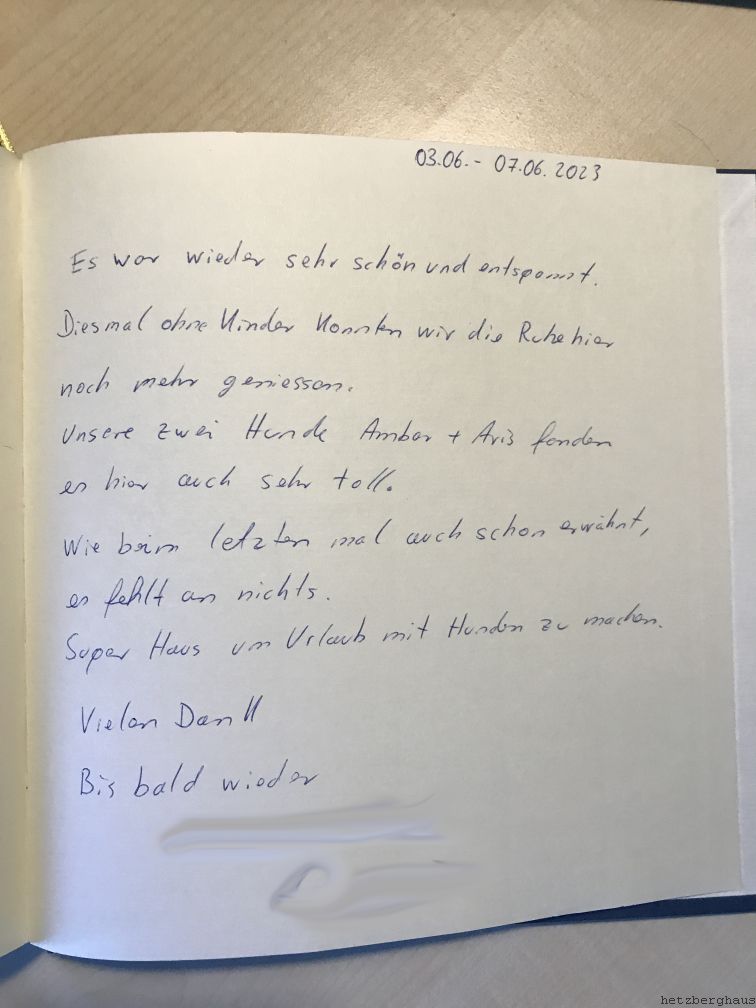 03.06. - 07.06. 2023
Es war wieder sehr schön und entspannt.
Diesmal ohne Kinder konnten wir die Ruhe hier
noch mehr geniessen.
Unsere zwei Hunde Ambar + Aris fanden
es hier auch sehr toll.
Wie beim letzten mal auch schon erwähnt,
es fehlt an nichts.
Super Haus um Urlaub mit Hunden zu machen.
Vielen Dank
Bis bald wieder
hetzberghaus